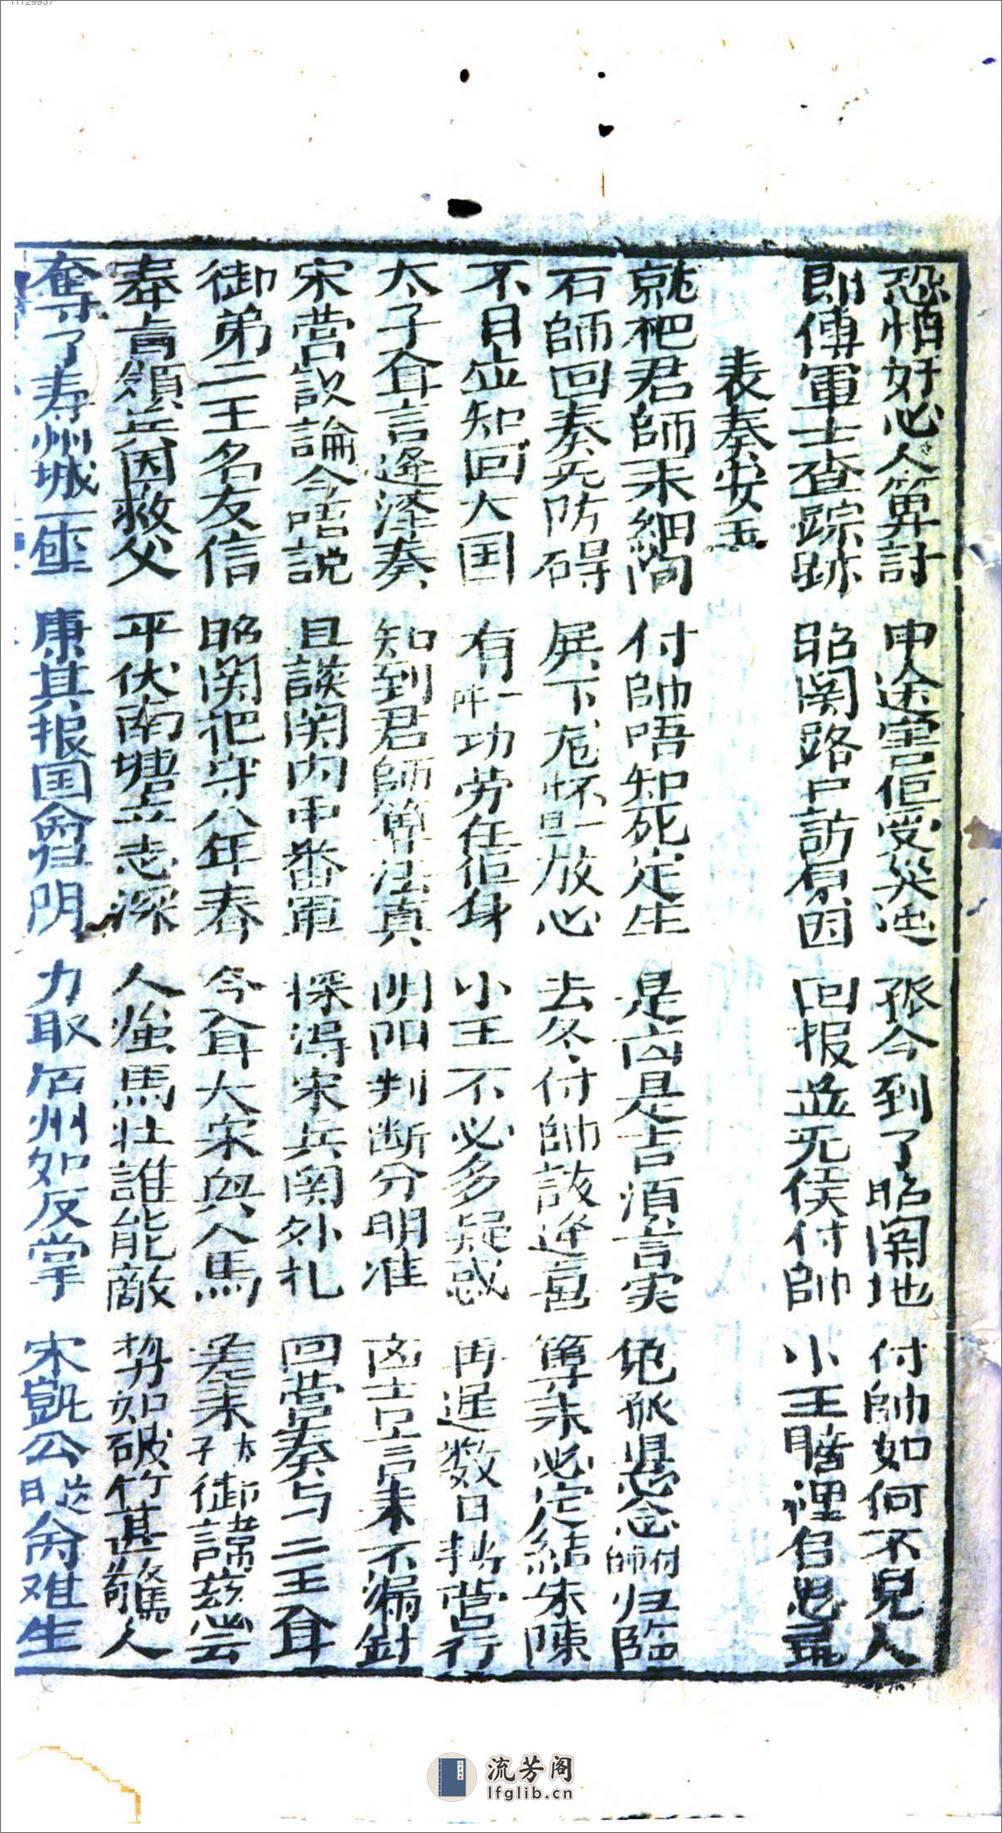 恐怕好心人算計　中途害佢受災迍　孤今到了昭関地　付帥如何不見人
即傳軍士查踪跡　昭関路口訪原因　回报並无侯付帥　小王腊裡自思尋
表奏安王
就把君師未細問　付帥唔知死定生　是凶是吉須言実　免孤思念付帥归臨
石師回奏无防碍　屏下宽怀且放心　去冬付帥該逢喜　算来必定結朱陳
不日並知回大国　有一功劳在佢身　小王不必多疑惑　再延数日扎营行
太子耸言逢泽奏　知到君師算法真　阴阳判断分明准　凶吉言来不漏針
宋营談論今唔説　且談関内甲番軍　探淂宋兵関外扎　回营奏与二王耸
御弟二王名友信　昭関把守八年春　今耸大宋興人馬　差来太子御諱兹雲
奉言領兵因救父　平伏南塘立志深　人強馬壮誰能敵　势如破竹甚驚人
奪了寿州城一座　康其报国命归阴　力取启州如反掌　宋凱公䀲命难生
流芳阁
lfglib.cn
11129937